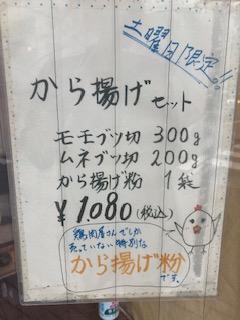 土曜日限定!!
から揚げセット
モモブツ切 300g
ムネブツ切 200g
から揚げ粉 1袋
¥1,080(税込)
鶏肉屋さんでしか
売っていない特別な
から揚げ粉
です。